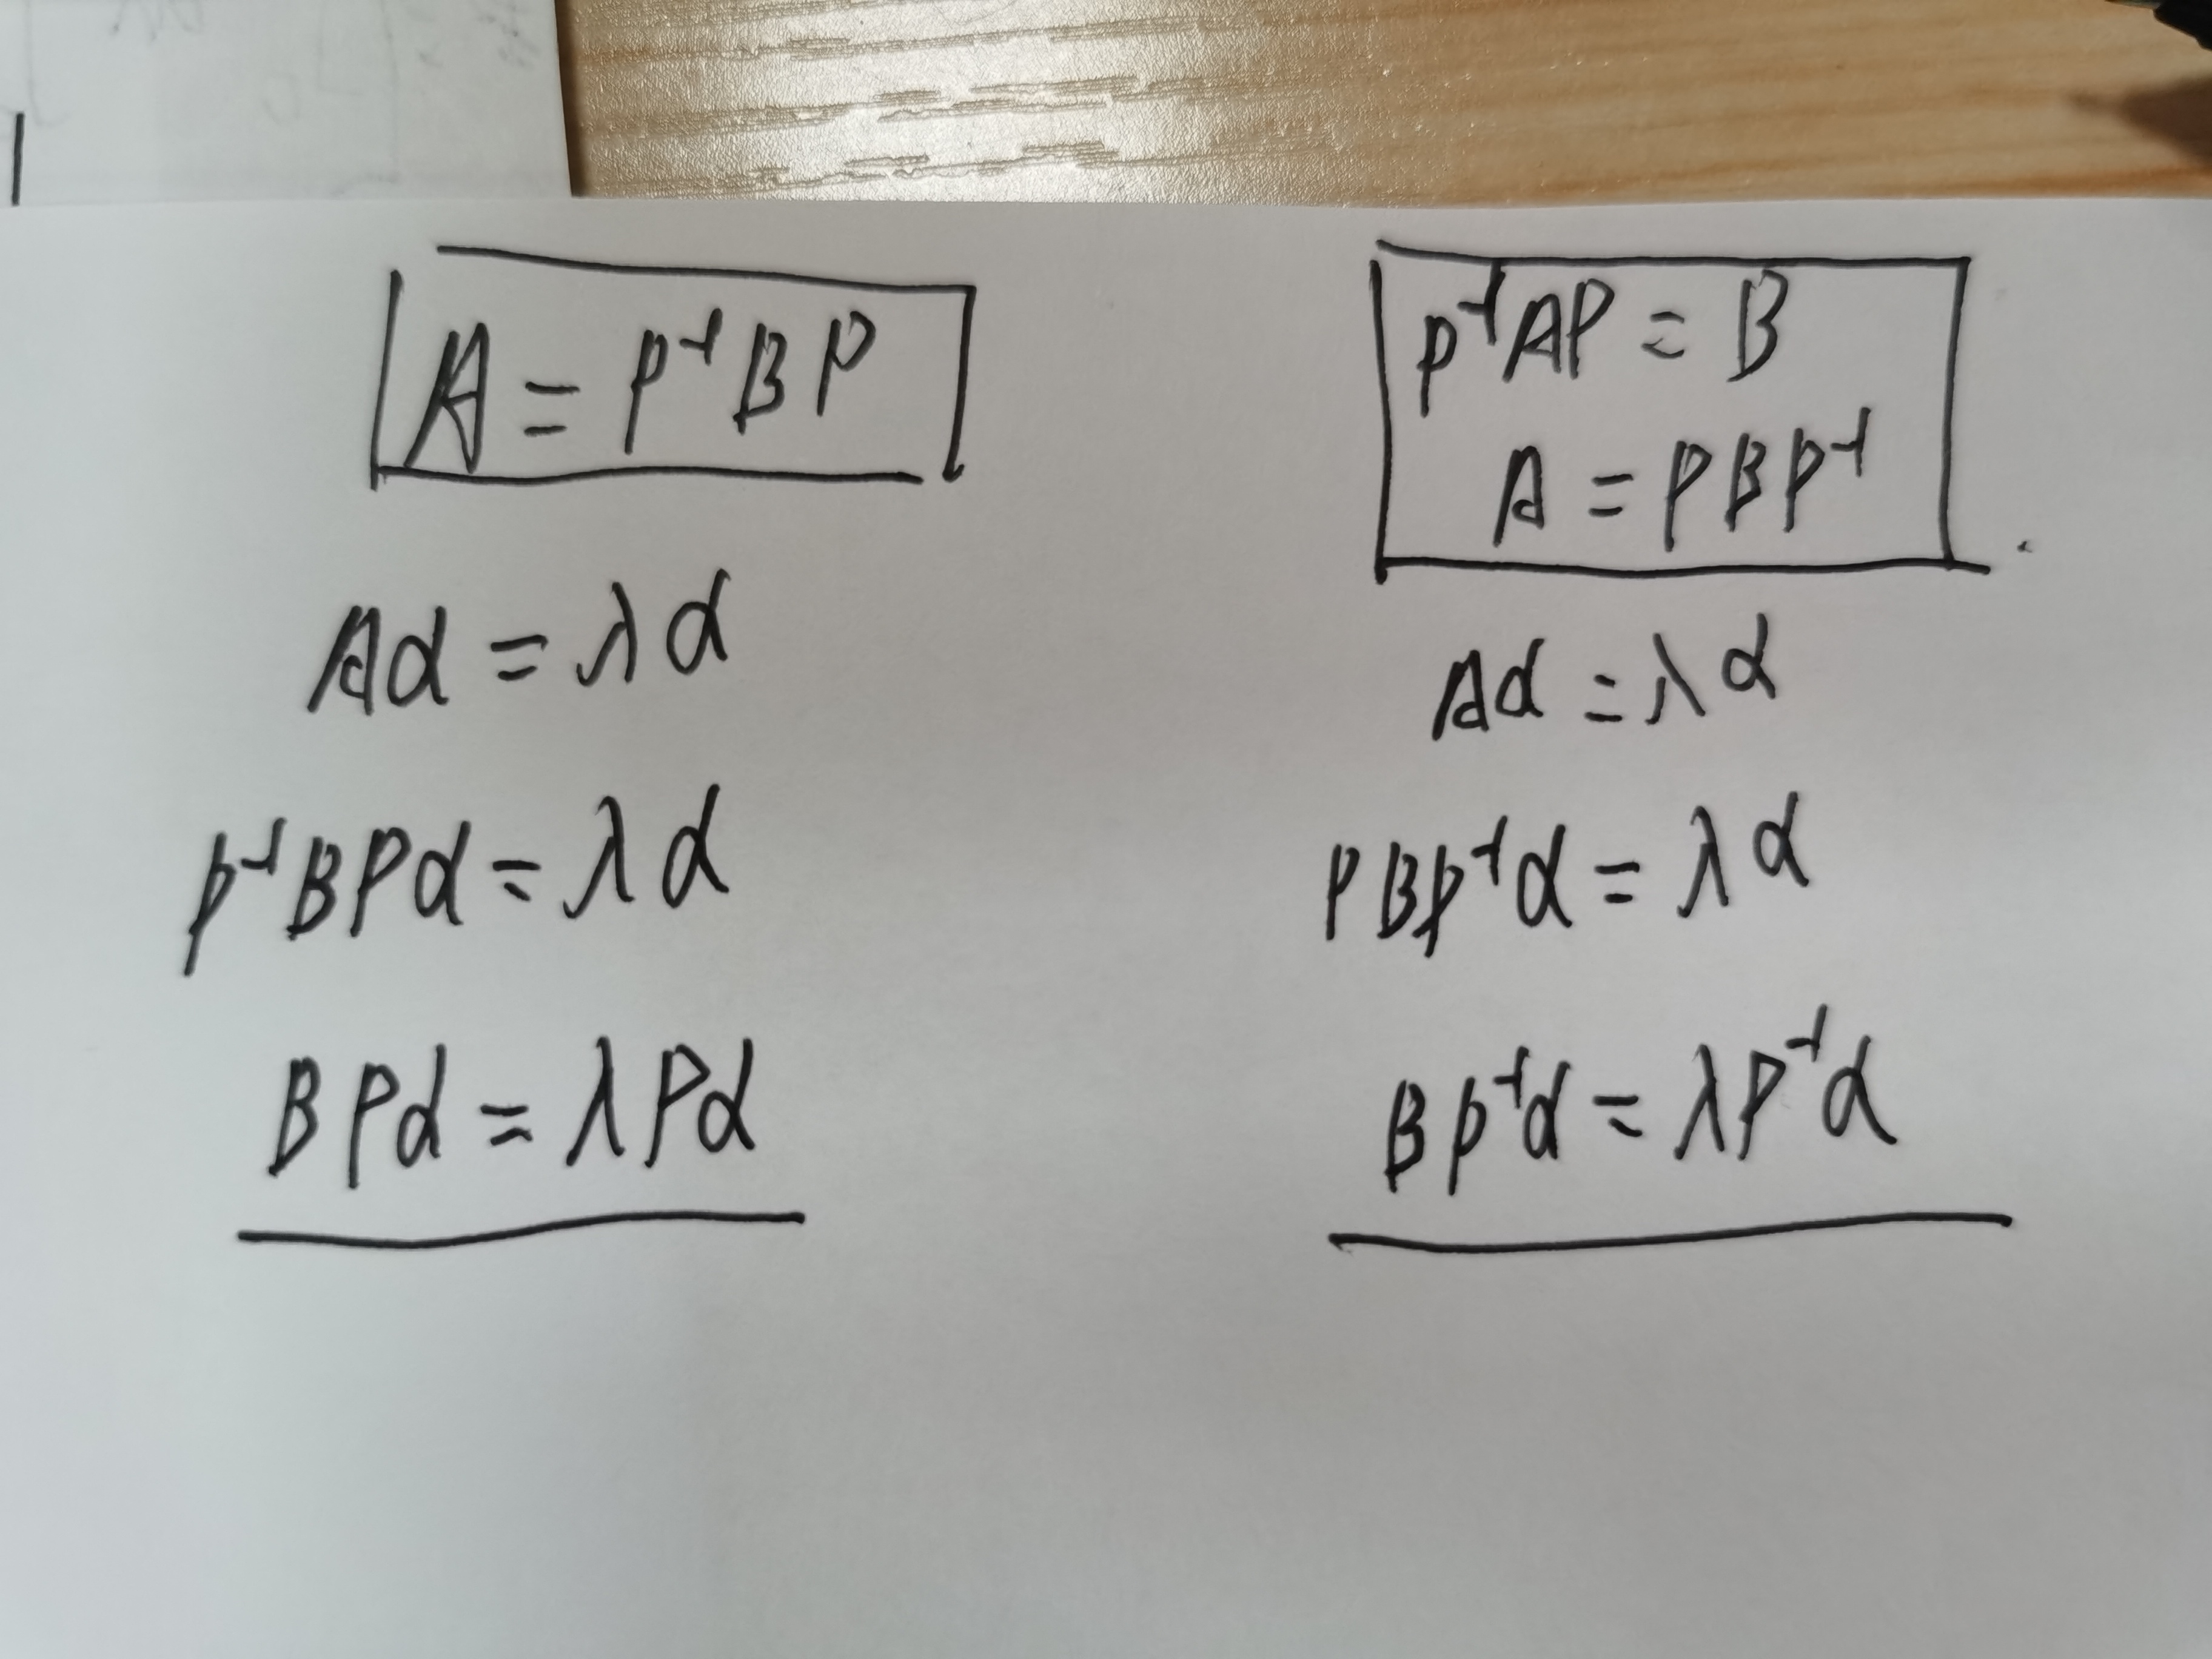 A = P⁻¹BP
Aα = λα
P⁻¹BPα = λα
BPα = λPα
P⁻¹AP = B
A = PBP⁻¹
Aα = λα
PBP⁻¹α = λα
BP⁻¹α = λP⁻¹α